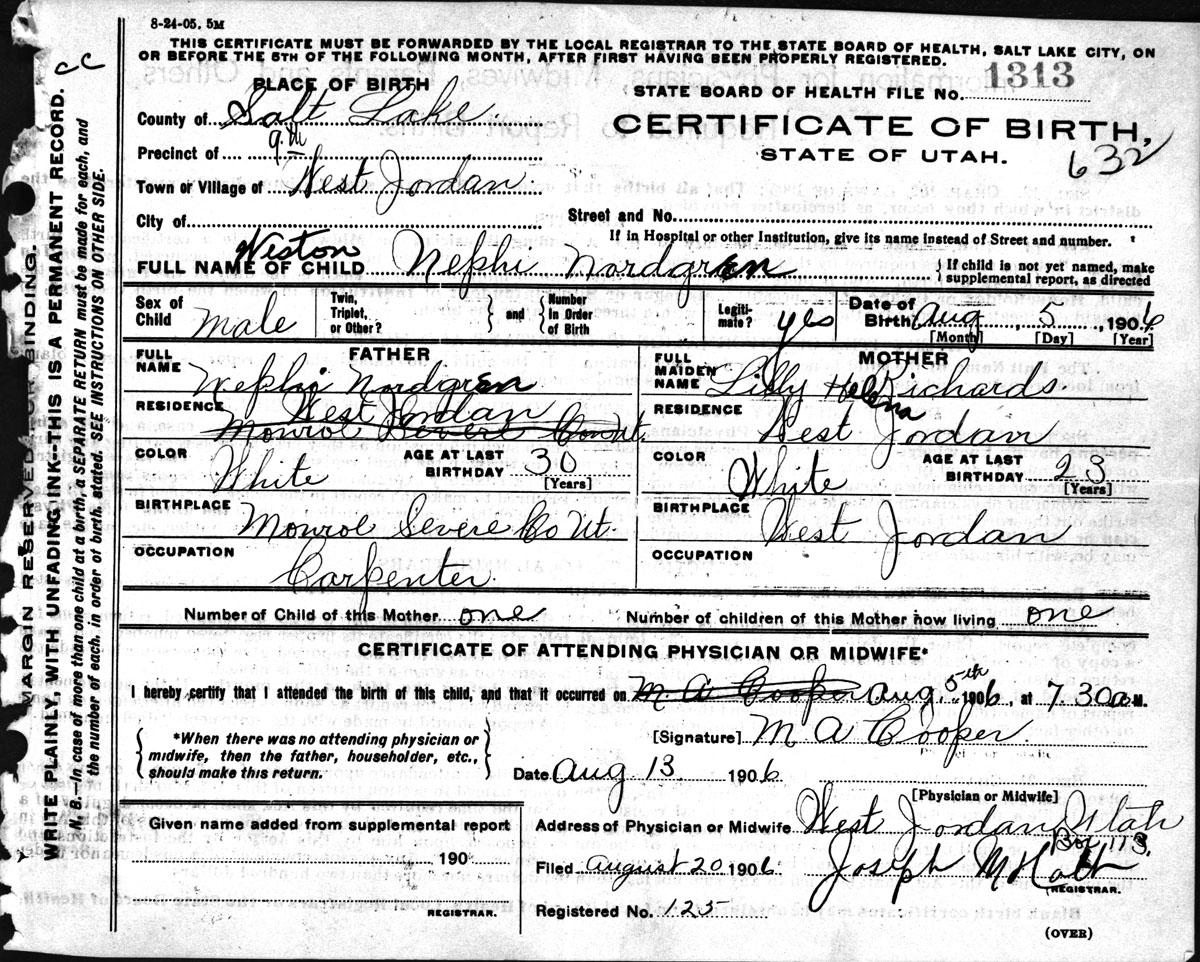 8-24-05. 5M
THIS CERTIFICATE MUST BE FORWARDED BY THE LOCAL REGISTRAR TO THE STATE BOARD OF HEALTH, SALT LAKE CITY, ON
OR BEFORE THE 5TH OF THE FOLLOWING MONTH, AFTER FIRST HAVING BEEN PROPERLY REGISTERED.
cc
PLACE OF BIRTH
STATE BOARD OF HEALTH FILE NO. 1313
County of Salt Lake
CERTIFICATE OF BIRTH,
Precinct of 9th
STATE OF UTAH.
632
Town or Village of West Jordan
City of
Street and No.
If in Hospital or other Institution, give its name instead of Street and number.
FULL NAME OF CHILD Weston Nephi Nordgren
{If child is not yet named, make supplemental report, as directed
Sex of Child Male
Twin, Triplet, or Other? } and { Number in Order of Birth
Legitimate? yes
Date of Birth Aug, 5, 1906
[Month] [Day] [Year]
FATHER
FULL NAME Nephi Nordgren
RESIDENCE West Jordan
Monroe Severe Co Ut.
COLOR White
AGE AT LAST BIRTHDAY 30
[Years]
BIRTHPLACE Monroe Severe Co Ut.
OCCUPATION Carpenter
MOTHER
FULL MAIDEN NAME Lilly Helena Richards
RESIDENCE West Jordan
COLOR White
AGE AT LAST BIRTHDAY 23
[Years]
BIRTHPLACE West Jordan
OCCUPATION
Number of Child of this Mother one
Number of children of this Mother now living one
CERTIFICATE OF ATTENDING PHYSICIAN OR MIDWIFE*
I hereby certify that I attended the birth of this child, and that it occurred on M A Cooper Aug 5th 1906, at 7.30 a M.
{*When there was no attending physician or midwife, then the father, householder, etc., should make this return.}
[Signature] M A Cooper
Date Aug 13 1906
[Physician or Midwife]
Given name added from supplemental report
190
REGISTRAR.
Address of Physician or Midwife West Jordan Utah
Box 173.
Filed August 20 1906
Joseph M Holt
REGISTRAR.
Registered No. 125
(OVER)
MARGIN RESERVED FOR BINDING.
WRITE PLAINLY, WITH UNFADING INK—THIS IS A PERMANENT RECORD.
N. B. In case of more than one child at a birth, a SEPARATE RETURN must be made for each, and
the number of each, in order of birth, stated. SEE INSTRUCTIONS ON OTHER SIDE.